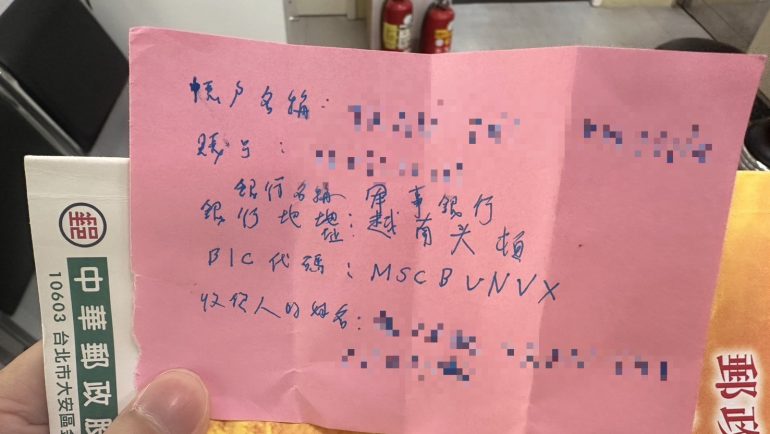 帳戶名稱:
號:
銀行名稱 軍事銀行
銀行地址:越南头頓
BIC代碼:MSCBVNVX
人的姓名:
郵
中華郵政股
10603 台北市大安區
郵政